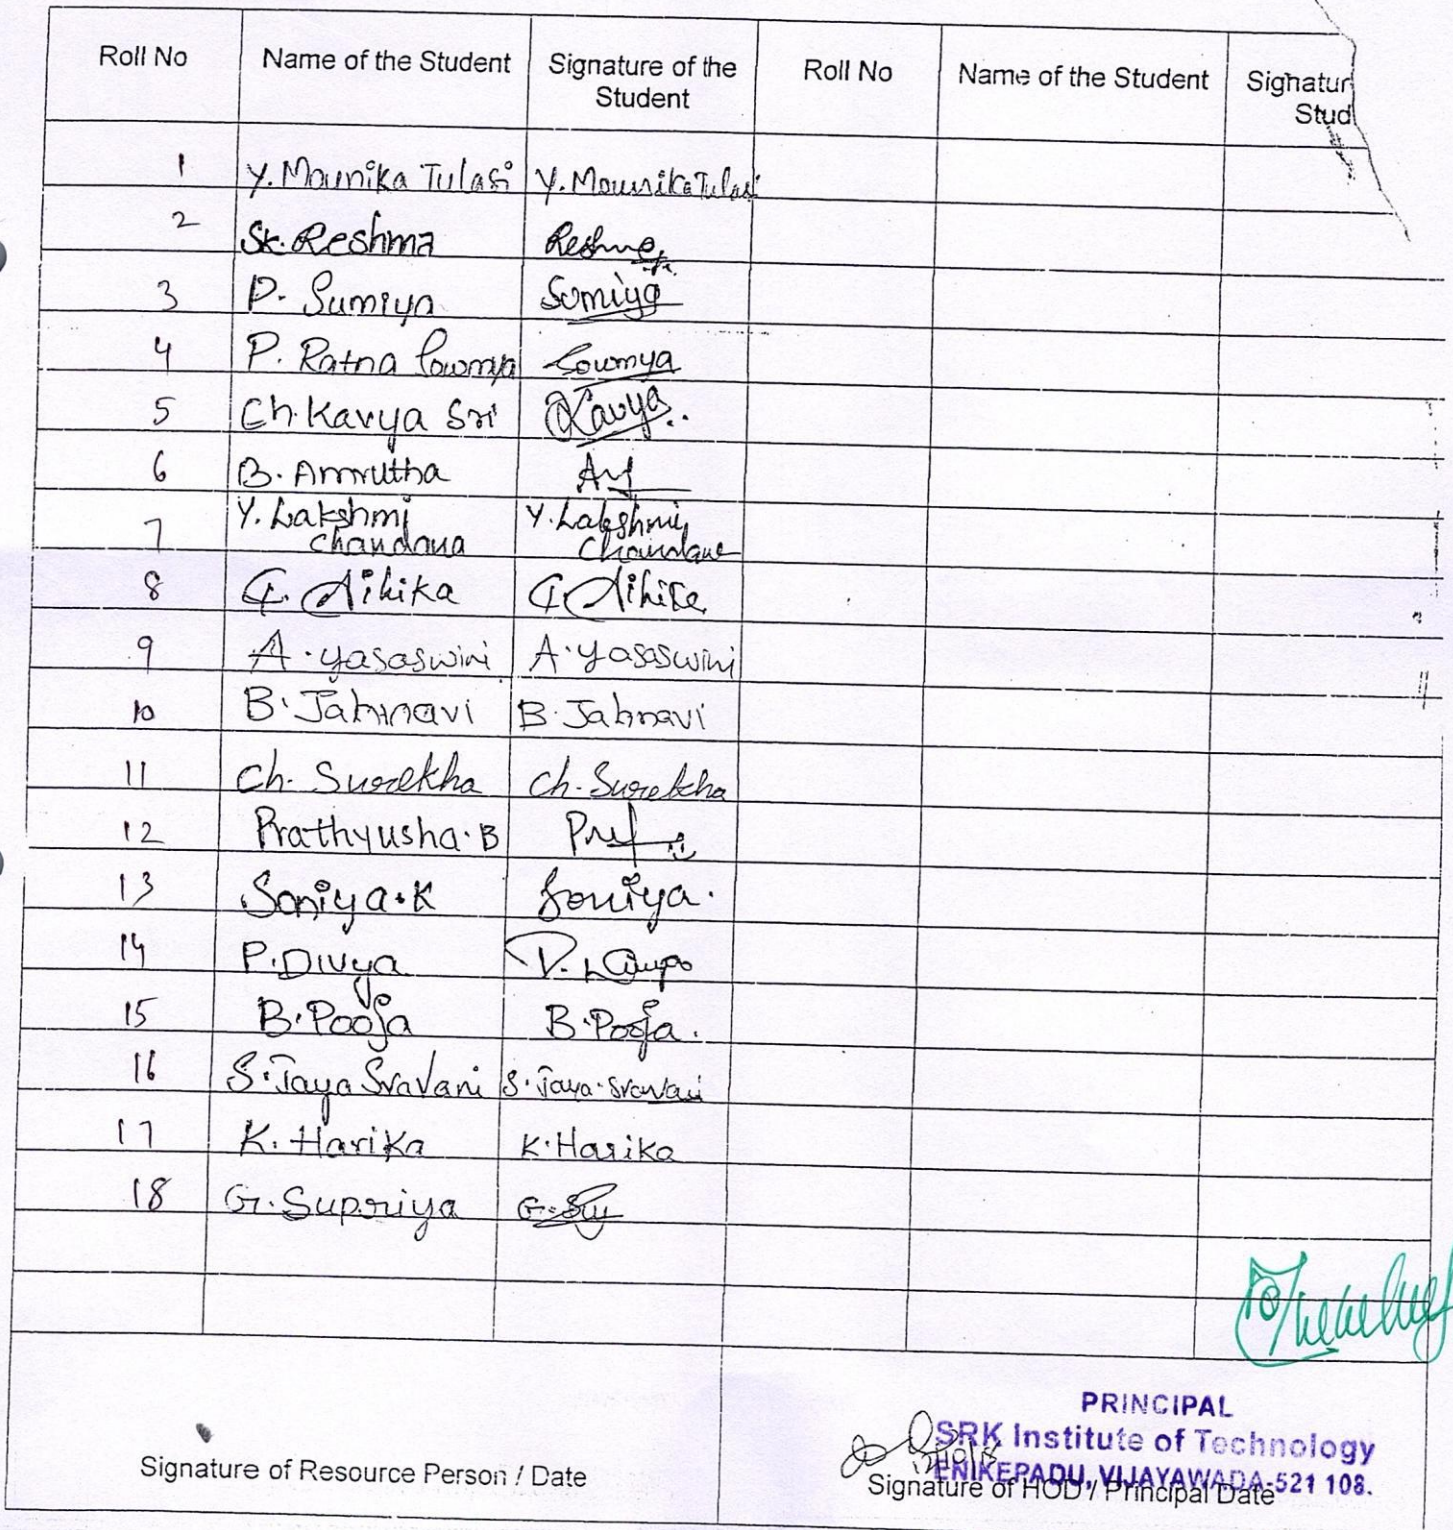 Roll No Name of the Student Signature of the Student Roll No Name of the Student Signatur Stud
1 Y. Mounika Tulasi Y. Mounika Tulasi
2 Sk. Reshma Reshma
3 D. Sumiya Sumiya
4 P. Ratna Sowmya Soumya
5 Ch. Kavya Sri Kavya.
6 B. Amrutha
7 Y. Lakshmi chandana Y. Lakshmi Chandana
8 G. G.
9 A. yasaswini A. yasaswini
10 B. Jahnavi B. Jahnavi
11 Ch. Surekha Ch. Surekha
12 Prathyusha. B
13 Soniya. K Soniya.
14 P. Divya
15 B. Pooja B. Pooja.
16 S. Jaya Sravani S. Jaya. Sravani
17 K. Harika K. Harika
18 G. Supriya G.
PRINCIPAL
SRK Institute of Technology
ENIKEPADU, VIJAYAWADA-521 108.
Signature of Resource Person / Date Signature of HOD / Principal Date